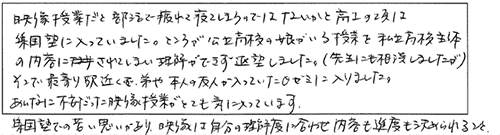 映像授業だと部活で疲れて寝てしまうのではないかと高1の頃は
集団塾に入っていました。ところが公立高校の娘がいる授業を私立高校主体
の内容にされてしまい理解ができず退塾しました。(先生にも相談しましたが)
そこで最寄り駅近くで、弟や本人の友人が入っていたゼミに入りました。
あんなに不安だった映像授業がとても気に入っています。
集団塾での苦い思いがあり、映像は自分の理解度に合わせ内容も進度も決められること。